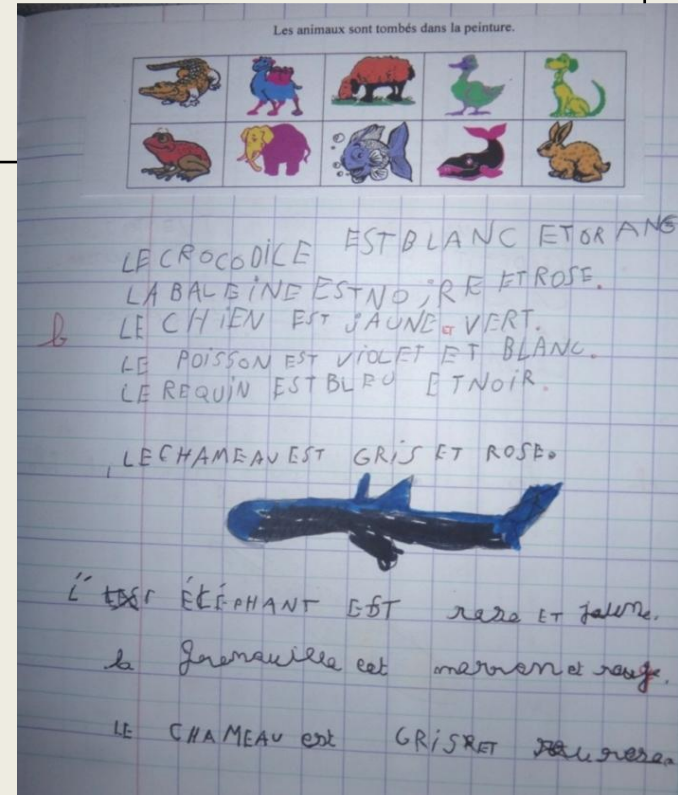 Les animaux sont tombés dans la peinture.
LE CROCODICE EST BLANC ET ORANG
LA BALEINE EST NOiRE ET ROSE.
b LE CHiEN EST JAUNE et VERT.
LE POiSSON EST ViOLET ET BLANC.
LE REQUiN EST BLEU ET NOiR.
LE CHAMEAU EST GRiS ET ROSE.
L'ÉLÉPHANT EST rose ET jaune.
la grenouille est marron et rouge.
LE CHAMEAU est GRiS ET rose.